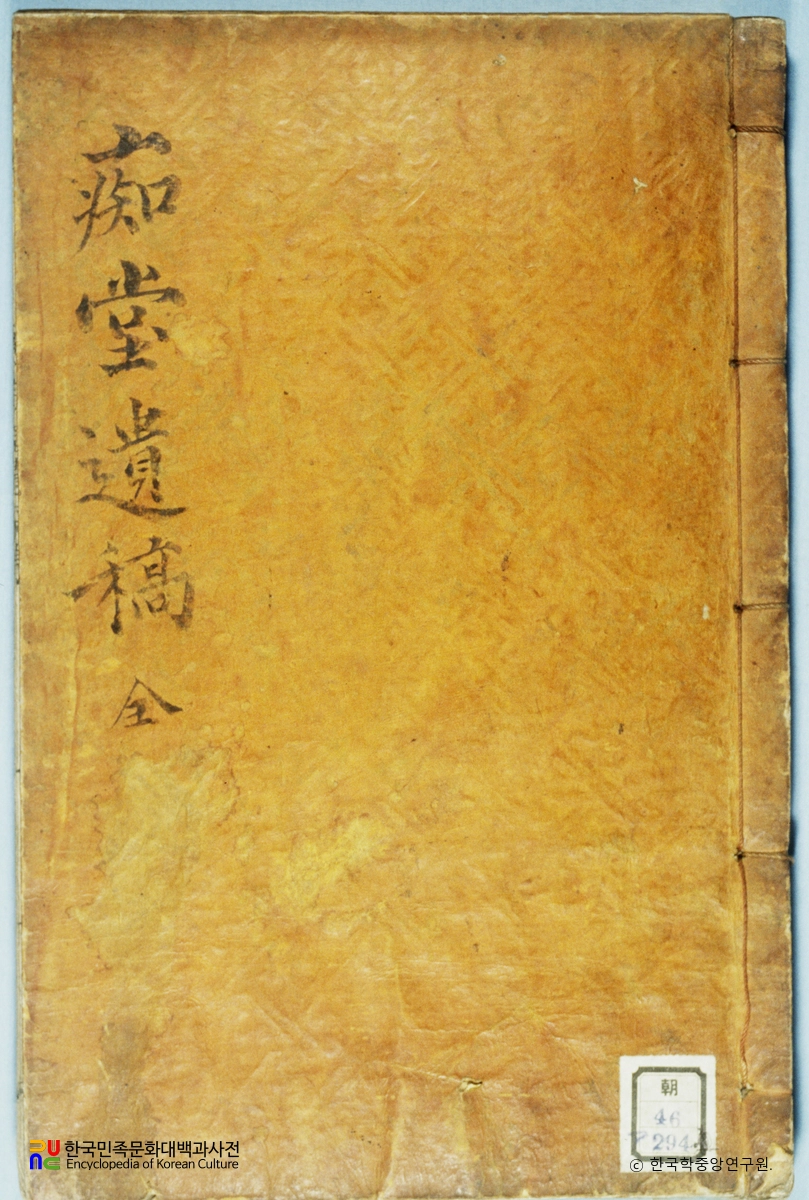 痴堂遺稿 全
朝
46
294
한국민족문화대백과사전
Encyclopedia of Korean Culture
© 한국학중앙연구원.